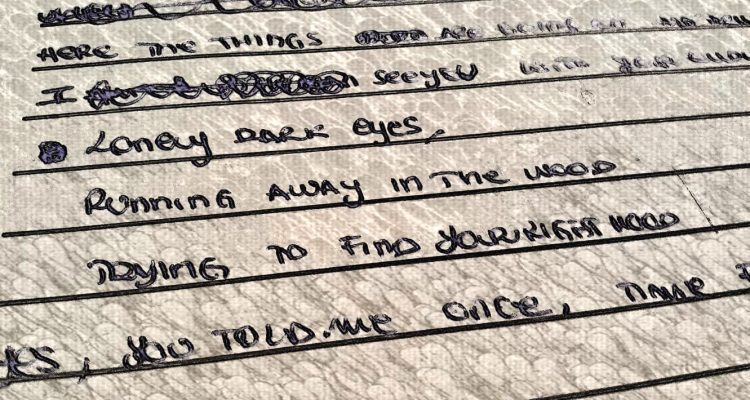 HERE THE THINGS ARE GOING ON AND
I SEE YOU WITH YOUR
LONELY DARK EYES,
RUNNING AWAY IN THE WOOD
TRYING TO FIND YOUR RIGHT MOOD
YES, YOU TOLD ME ONCE, TIME